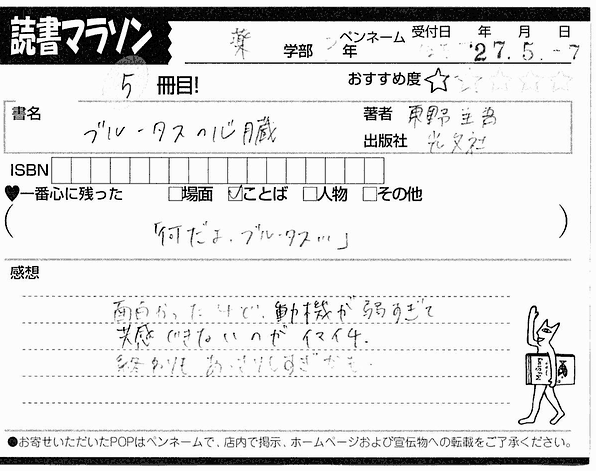 読書マラソン
薬 学部 年 ペンネーム 受付日 年 月 日
'27.5.-7
5 冊目! おすすめ度 ☆
書名 ブルータスの心臓
著者 東野圭吾
出版社 光文社
ISBN
♥一番心に残った □場面 ☑ことば □人物 □その他
(「何だよ、ブルータス…」)
感想
面白かったけど、動機が弱すぎて
共感できないのがイマイチ。
終わりも あっさりしすぎかも。
●お寄せいただいたPOPはペンネームで、店内で掲示、ホームページおよび宣伝物への転載をご了承ください。